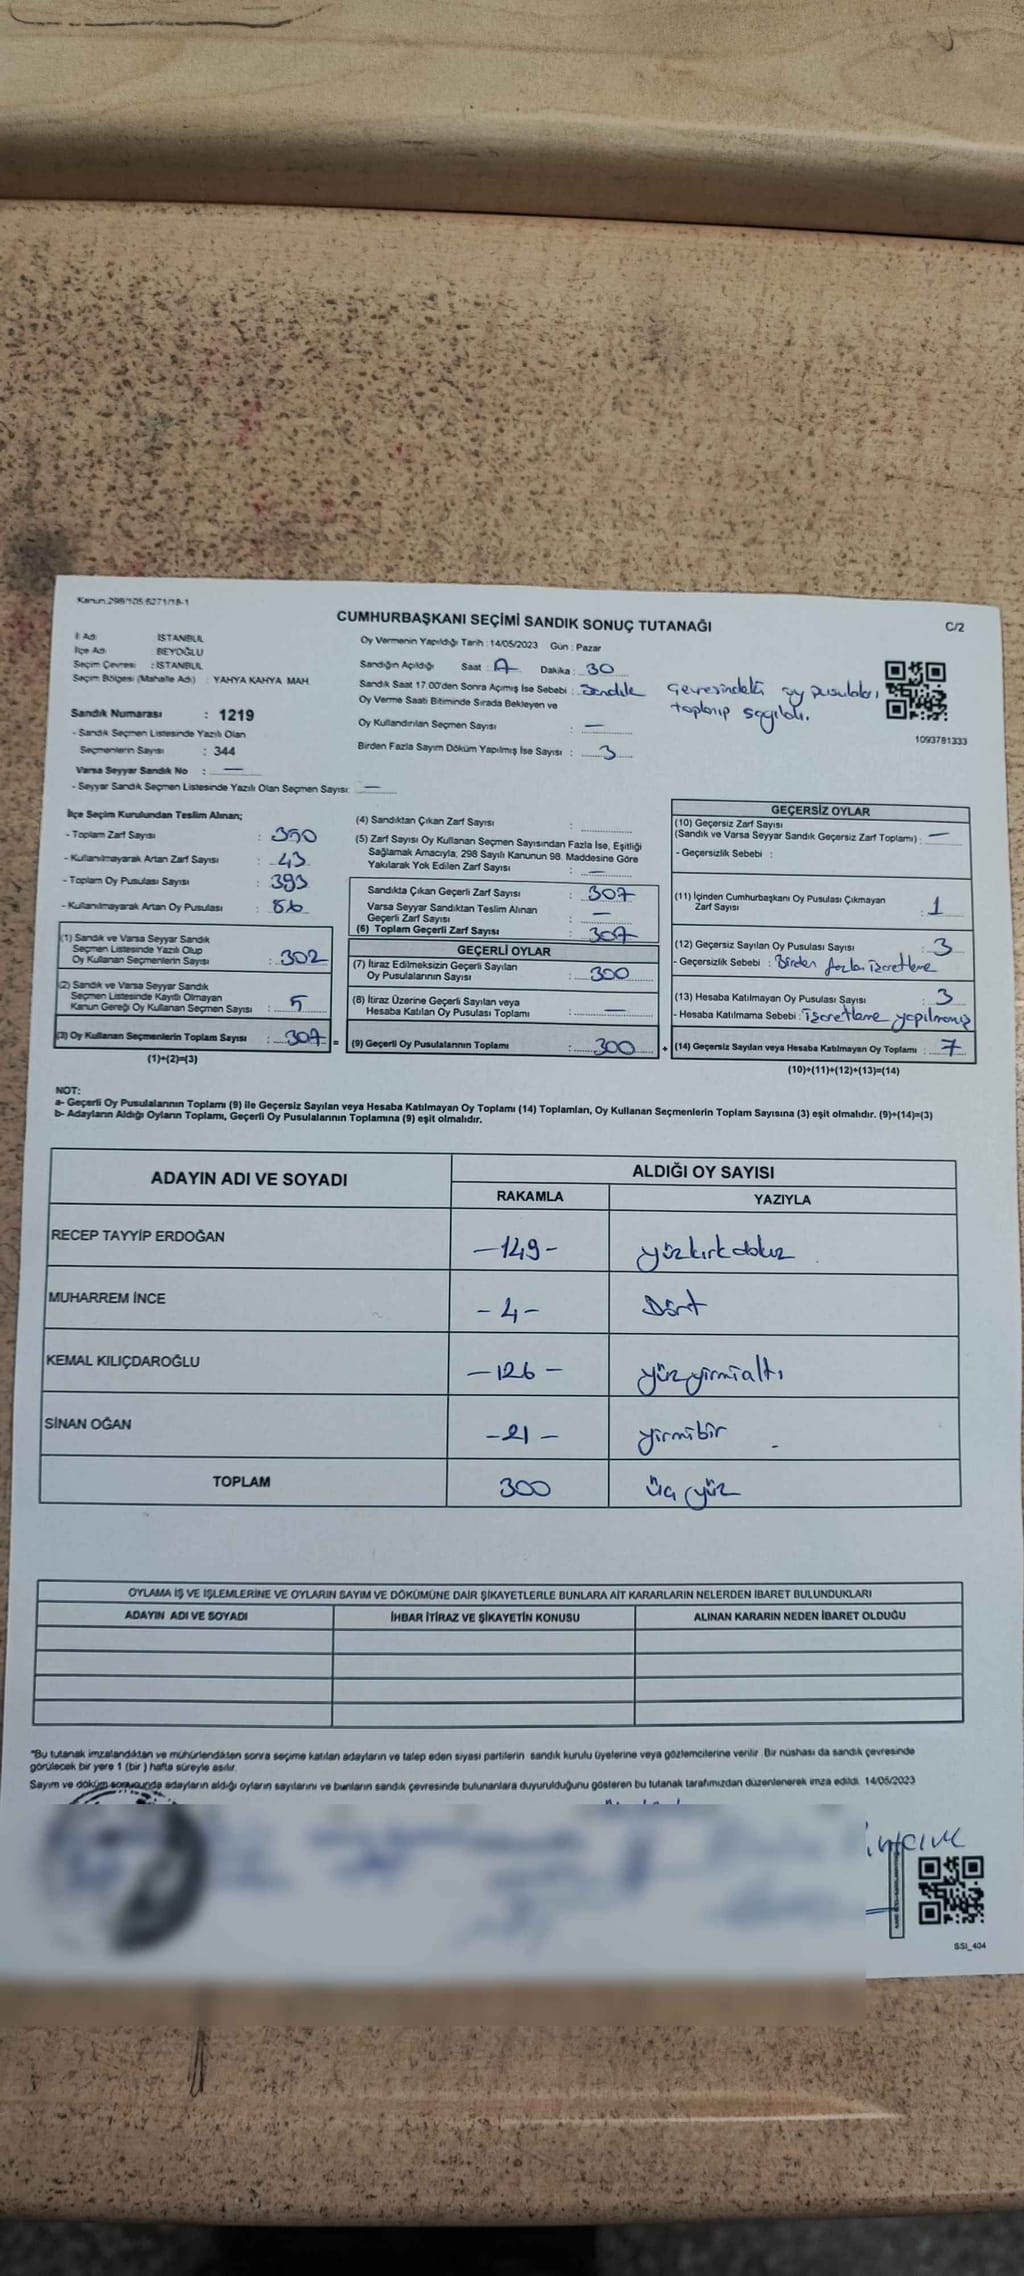 Kanun.298/105:6271/18-1
CUMHURBAŞKANI SEÇİMİ SANDIK SONUÇ TUTANAĞI
C/2
İl Adı İSTANBUL
İlçe Adı BEYOĞLU
Seçim Çevresi : İSTANBUL
Seçim Bölgesi (Mahalle Adı) : YAHYA KAHYA MAH.
Sandık Numarası : 1219
- Sandık Seçmen Listesinde Yazılı Olan
Seçmenlerin Sayısı : 344
Varsa Seyyar Sandık No : —
- Seyyar Sandık Seçmen Listesinde Yazılı Olan Seçmen Sayısı: —
Oy Vermenin Yapıldığı Tarih : 14/05/2023 Gün : Pazar
Sandığın Açıldığı Saat : Dakika : 30
Sandık Saat 17.00'den Sonra Açımış İse Sebebi : Sandık çevresindeki oy pusulaları
toplanıp sayıldı.
Oy Verme Saati Bitiminde Sırada Bekleyen ve
Oy Kullandırılan Seçmen Sayısı : —
Birden Fazla Sayım Döküm Yapılmış İse Sayısı : 3
1093781333
İlçe Seçim Kurulundan Teslim Alınan;
- Toplam Zarf Sayısı : 350
- Kullanılmayarak Artan Zarf Sayısı : 43
- Toplam Oy Pusulası Sayısı : 393
- Kullanılmayarak Artan Oy Pusulası : 86
(1) Sandık ve Varsa Seyyar Sandık
Seçmen Listesinde Yazılı Olup
Oy Kullanan Seçmenlerin Sayısı : 302
(2) Sandık ve Varsa Seyyar Sandık
Seçmen Listesinde Kayıtlı Olmayan
Kanun Gereği Oy Kullanan Seçmen Sayısı : 5
(3) Oy Kullanan Seçmenlerin Toplam Sayısı : 307 =
(1)+(2)=(3)
(4) Sandıktan Çıkan Zarf Sayısı :
(5) Zarf Sayısı Oy Kullanan Seçmen Sayısından Fazla İse, Eşitliği
Sağlamak Amacıyla, 298 Sayılı Kanunun 98. Maddesine Göre
Yakılarak Yok Edilen Zarf Sayısı : —
Sandıkta Çıkan Geçerli Zarf Sayısı : 307
Varsa Seyyar Sandıktan Teslim Alınan
Geçerli Zarf Sayısı : —
(6) Toplam Geçerli Zarf Sayısı : 307
GEÇERLİ OYLAR
(7) İtiraz Edilmeksizin Geçerli Sayılan
Oy Pusulalarının Sayısı : 300
(8) İtiraz Üzerine Geçerli Sayılan veya
Hesaba Katılan Oy Pusulası Toplamı : —
(9) Geçerli Oy Pusulalarının Toplamı : 300 +
GEÇERSİZ OYLAR
(10) Geçersiz Zarf Sayısı
(Sandık ve Varsa Seyyar Sandık Geçersiz Zarf Toplamı) : —
- Geçersizlik Sebebi :
(11) İçinden Cumhurbaşkanı Oy Pusulası Çıkmayan
Zarf Sayısı : 1
(12) Geçersiz Sayılan Oy Pusulası Sayısı : 3
- Geçersizlik Sebebi : Birden fazla işaretleme
(13) Hesaba Katılmayan Oy Pusulası Sayısı : 3
- Hesaba Katılmama Sebebi : işaretleme yapılmamış
(14) Geçersiz Sayılan veya Hesaba Katılmayan Oy Toplamı : 7
(10)+(11)+(12)+(13)=(14)
NOT:
a- Geçerli Oy Pusulalarının Toplamı (9) ile Geçersiz Sayılan veya Hesaba Katılmayan Oy Toplamı (14) Toplamları, Oy Kullanan Seçmenlerin Toplam Sayısına (3) eşit olmalıdır. (9)+(14)=(3)
b- Adayların Aldığı Oyların Toplamı, Geçerli Oy Pusulalarının Toplamına (9) eşit olmalıdır.
ADAYIN ADI VE SOYADI ALDIĞI OY SAYISI
RAKAMLA YAZIYLA
RECEP TAYYİP ERDOĞAN -149- yüzkırkdokuz
MUHARREM İNCE -4- Dört
KEMAL KILIÇDAROĞLU -126- yüzyirmialtı
SİNAN OĞAN -21- yirmibir
TOPLAM 300 üçyüz
OYLAMA İŞ VE İŞLEMLERİNE VE OYLARIN SAYIM VE DÖKÜMÜNE DAİR ŞİKAYETLERLE BUNLARA AİT KARARLARIN NELERDEN İBARET BULUNDUKLARI
ADAYIN ADI VE SOYADI İHBAR İTİRAZ VE ŞİKAYETİN KONUSU ALINAN KARARIN NEDEN İBARET OLDUĞU
"Bu tutanak imzalandıktan ve mühürlendikten sonra seçime katılan adayların ve talep eden siyasi partilerin sandık kurulu üyelerine veya gözlemcilerine verilir. Bir nüshası da sandık çevresinde
görülecek bir yere 1 (bir) hafta süreyle asılır.
Sayım ve döküm sonucunda adayların aldığı oyların sayılarını ve bunların sandık çevresinde bulunanlara duyurulduğunu gösteren bu tutanak tarafımızdan düzenlenerek imza edildi. 14/05/2023
SSI_404